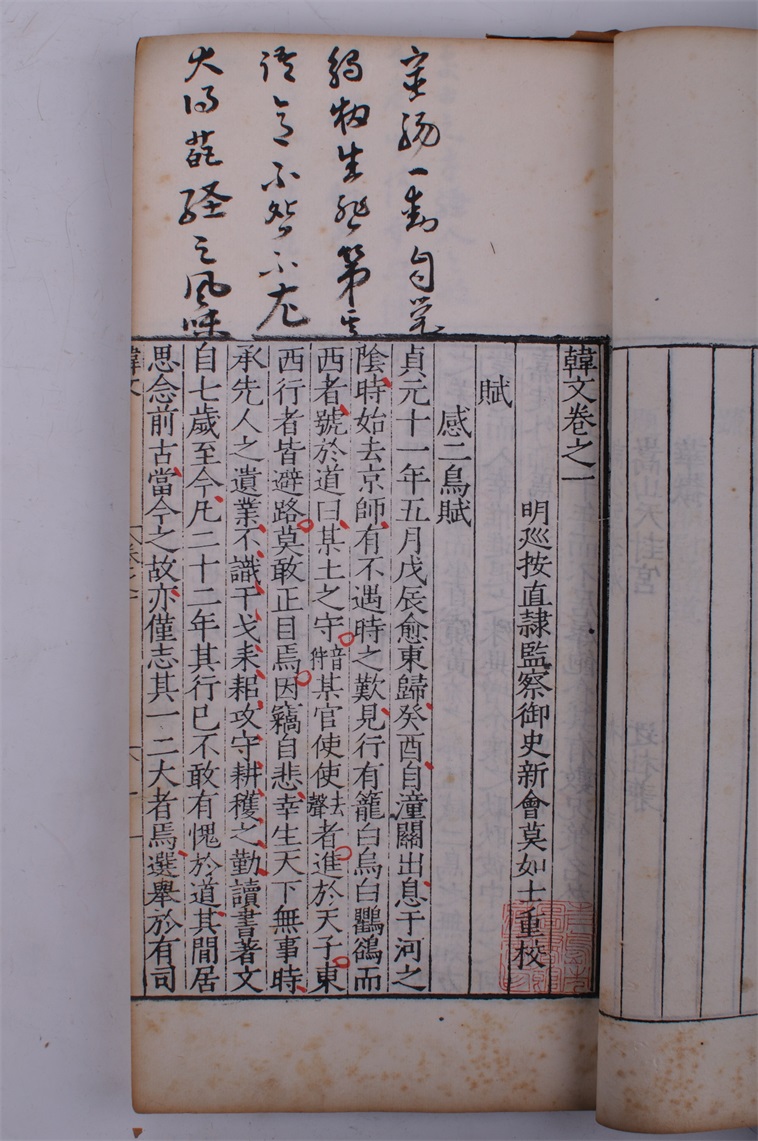 一對句
大得葩經之風味
韓文卷之一
明廵按直隷監察御史新會莫如士重校
賦
感二鳥賦
貞元十一年五月戊辰愈東歸癸酉自潼關出息于河之
陰時始去京師有不遇時之歎見行有籠白烏白鸜鵒而
西者號於道曰某土之守音某官使使去聲者進於天子東
西行者皆避路莫敢正目焉因竊自悲幸生天下無事時
承先人之遺業不識干戈耒耜攻守耕穫之勤讀書著文
自七歲至今凡二十二年其行已不敢有愧於道其閒居
思念前古當今之故亦僅志其一二大者焉選舉於有司
韓文